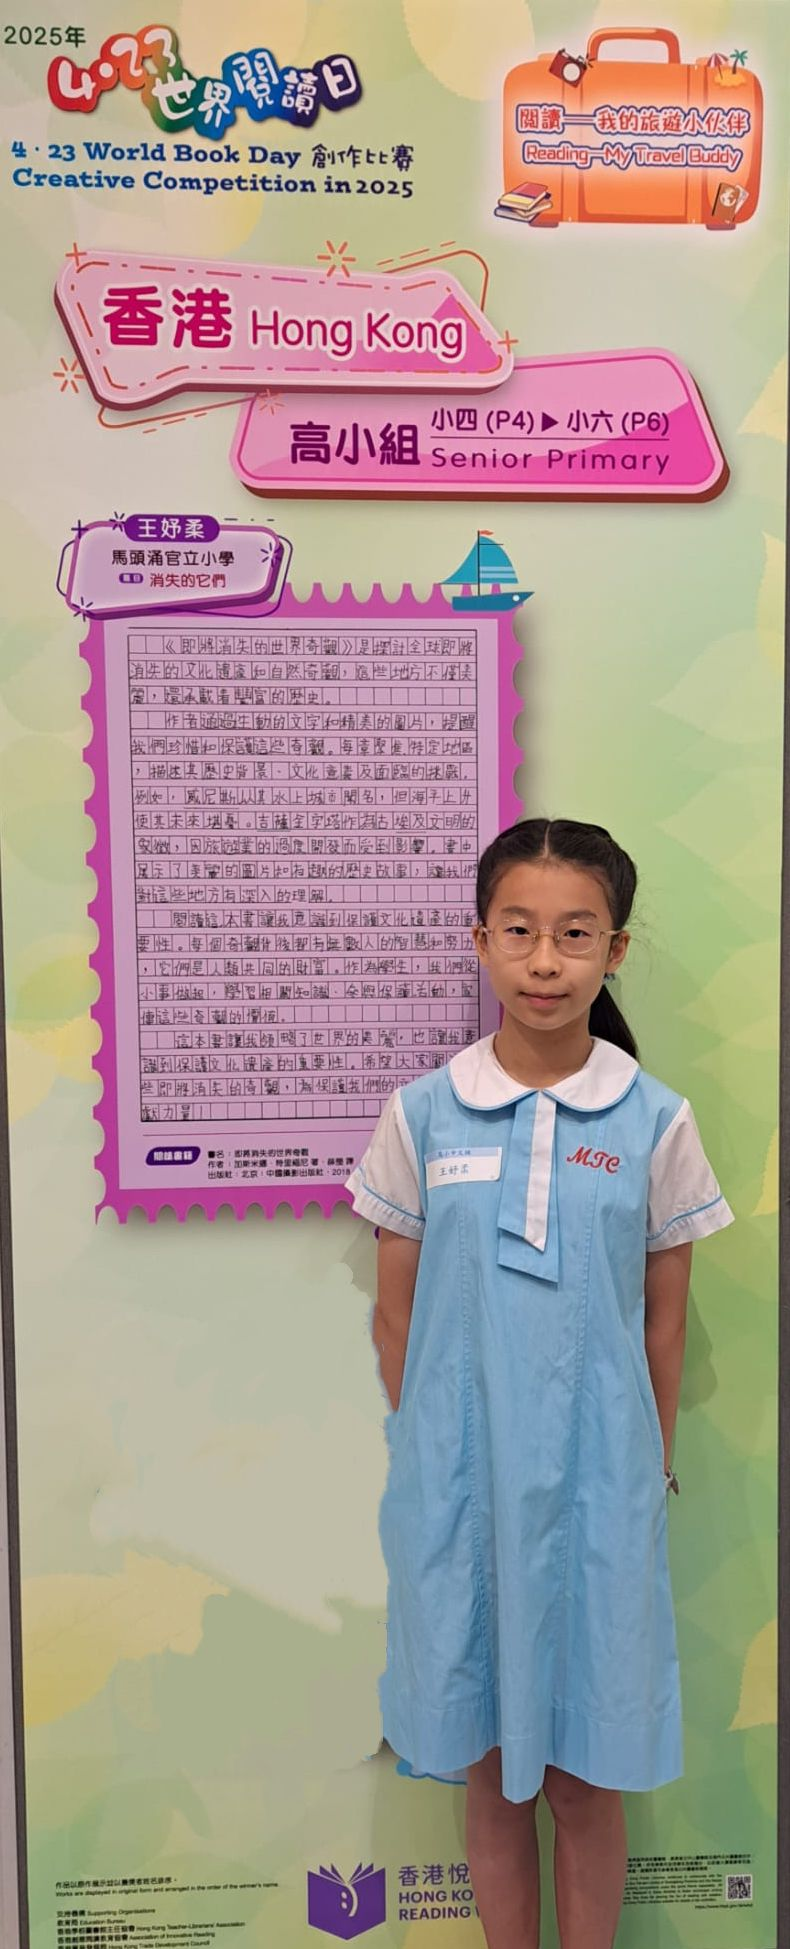 2025年
4·23世界閱讀日
4 · 23 World Book Day 創作比賽
Creative Competition in 2025
閱讀——我的旅遊小伙伴
Reading—My Travel Buddy
香港 Hong Kong
高小組 小四 (P4) ▶ 小六 (P6)
Senior Primary
王妤柔
馬頭涌官立小學
題目 消失的它們
《即將消失的世界奇觀》是探討全球即將
消失的文化遺產和自然奇觀，這些地方不僅美
麗，還承載着豐富的歷史。
作者通過生動的文字和精美的圖片，提醒
我們珍惜和保護這些奇觀。每章聚焦特定地區
，描述其歷史背景、文化意義及面臨的挑戰。
例如，威尼斯以其水上城市聞名，但海平上升
使其未來堪憂。吉薩金字塔作為古埃及文明的
象徵，因旅遊業的過度開發而受到影響。書中
展示了美麗的圖片和有趣的歷史故事，讓我們
對這些地方有深入的理解。
閱讀這本書讓我意識到保護文化遺產的重
要性。每個奇觀背後都有無數人的智慧和努力
，它們是人類共同的財富。作為學生，我們從
小事做起，學習相關知識、參與保護活動，宣
傳這些奇觀的價值。
這本書讓我領略了世界的美麗，也讓我意
識到保護文化遺產的重要性。希望大家關
些即將消失的奇觀，為保護我們的
獻力量！
閱讀書籍
書名：即將消失的世界奇觀
作者：加斯米娜·特里福尼 著．薛瑩 譯
出版社：北京：中國攝影出版社，2018
高小中文組
王妤柔
MTC
作品以原作展示並以獲獎者姓名排序。
Works are displayed in original form and arranged in the order of the winner's name.
支持機構 Supporting Organisations
教育局 Education Bureau
香港學校圖書館主任協會 Hong Kong Teacher-Librarians' Association
香港創意閱讀教育協會 Association of Innovative Reading
香港貿易發展局 Hong Kong Trade Development Council
香港悅
HONG KO
READING